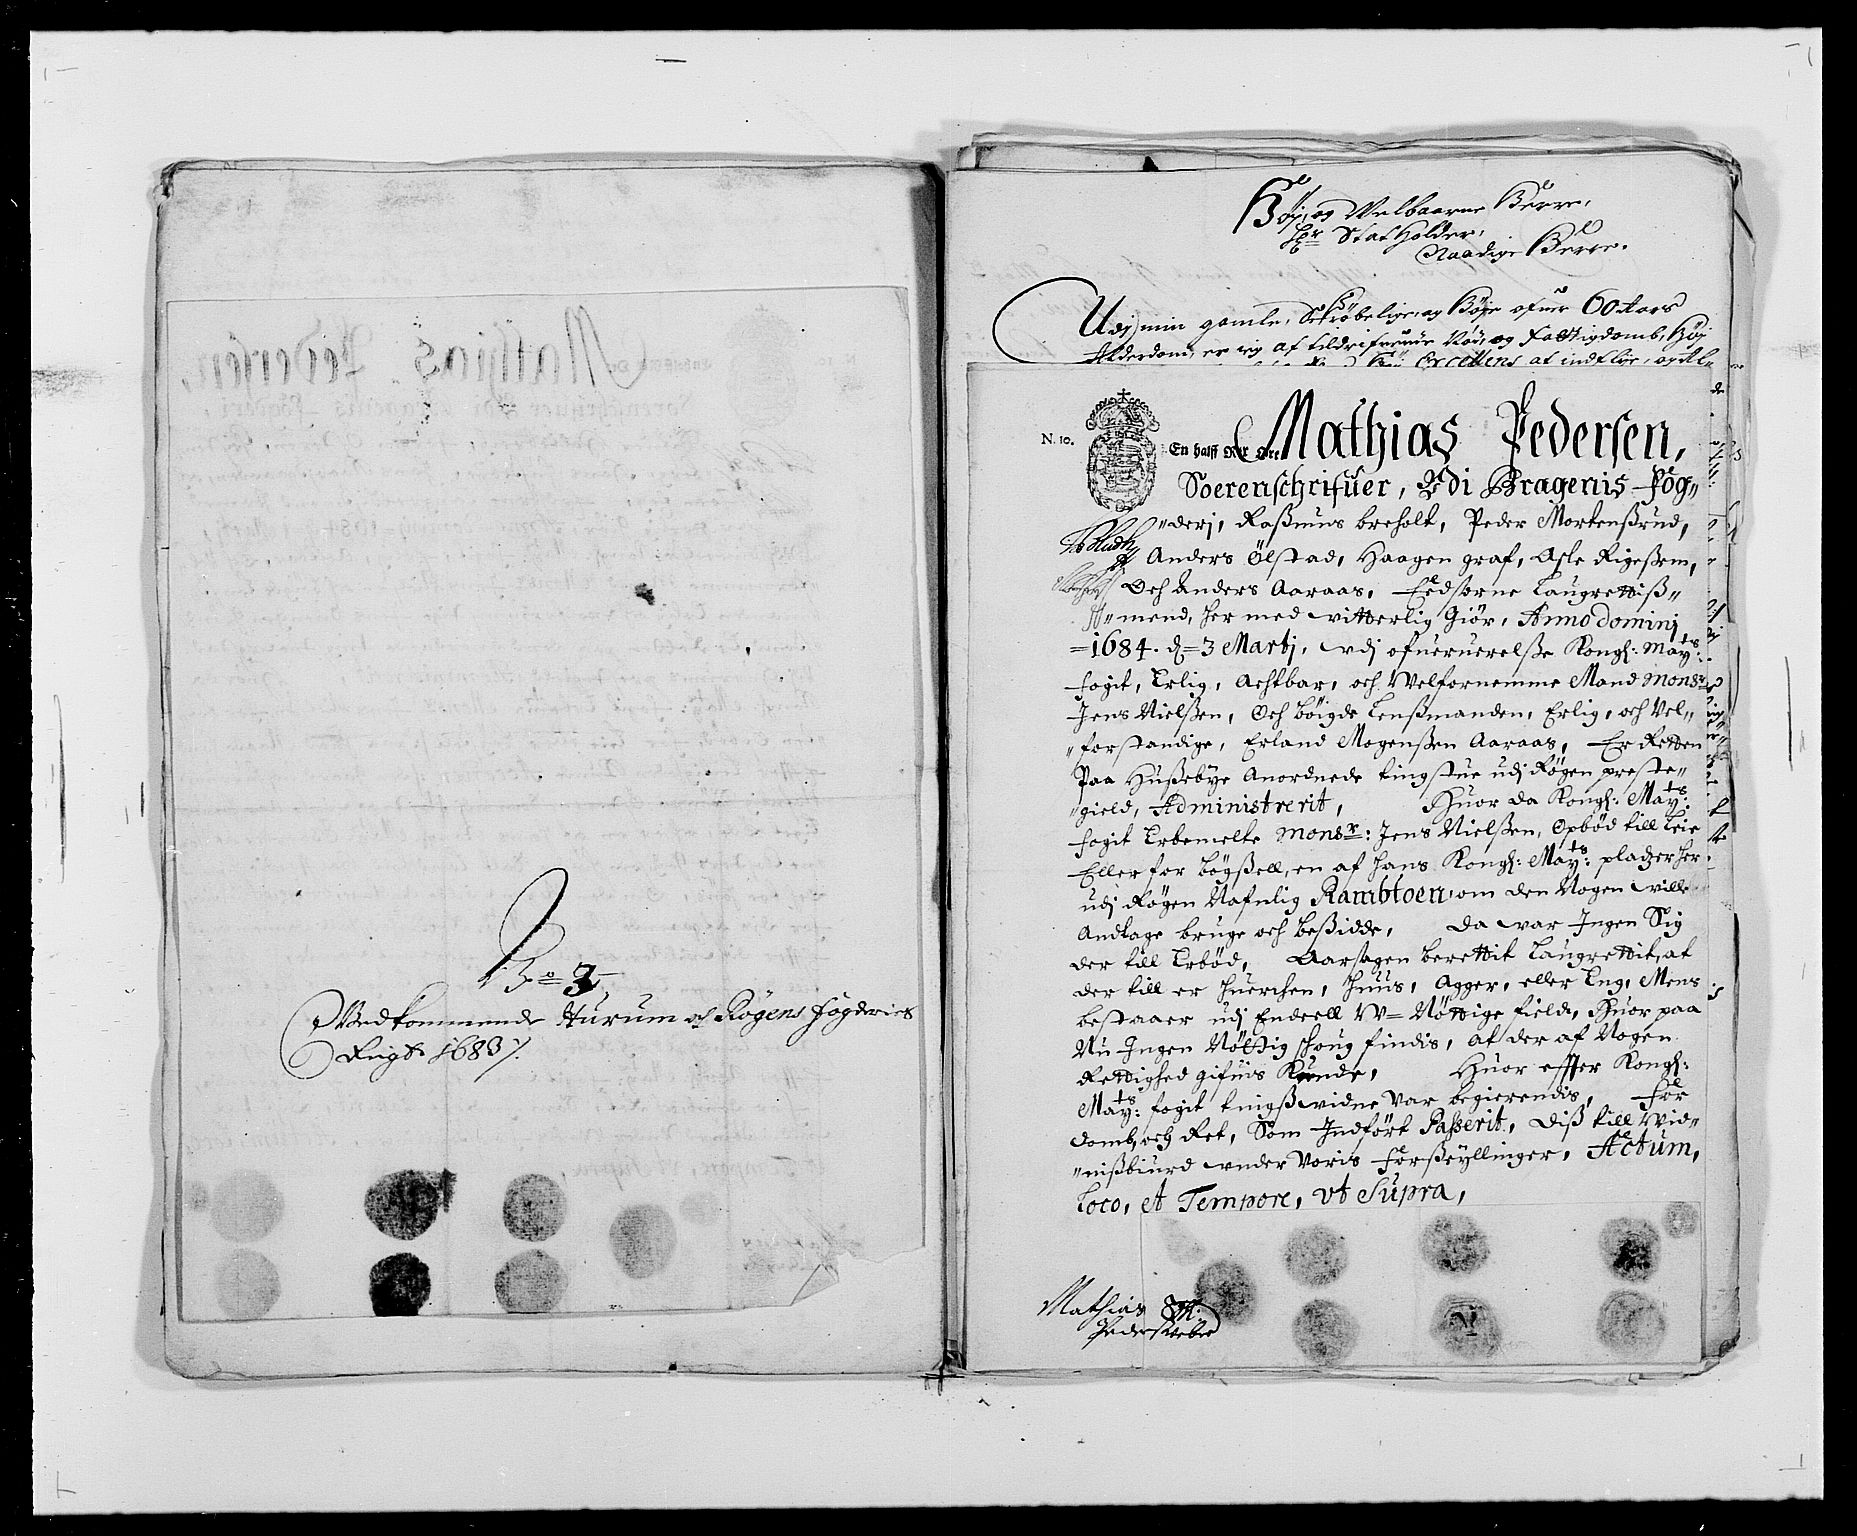 No 3
Vedkommende Hurum och Røgens fogderies
Regsk: 1683 /.
Høy, og Welbaarne Herre,
Hr Stathholder,
Naadige Herre.
Udj min gamle, Skrøbelige, og Høye ofuer 60 Aars
Alderdom, er ieg af tildrifuende Nød, og Fattigdomb, Høy
Excellens at indflye, og
N. 10.
En halff Ort
Mathias Pedersen,
Soerenschrifuer, Vdi Bragenis Fog„
„derj, Raßmus breholt, Peder Mortenßrud,
Anders Ölstad, Haagen graf, Asle Rigeßem,
Och Anders Aaraas, Eedsorne Laugrettiß„
„mend, her med vitterlig Giör, Anno dominj
=1684. d= 3 Martj, vdj ofueruerelße Kongl: Mayts:
fogit, Erlig, Achtbar, och Welfornemme Mand Monsr
Jens Nielßen, Och böigde Lenßmanden, Erlig, och Vel„
„forstandige, Erland Mogenßen Aaraas, Er Retten
Paa Hußebye Anordnede tingstue udj Røgen preste„
„gield, Administrerit, Huor da Kongl: Mayts:
fogit Erbemelte Monsr: Jens Nielßen, Opböd till Leie
Eller for bögßell, en af hans Kongl: Mayts: pladzer her
udj Røgen Nafnlig Rambtoen, om den Nogen ville
Andtage bruge och beßidde, Da war Ingen Sig
der till Erböd, Aarsagen berettit Laugrettit, at
der till er huerchen, huus, Agger, eller Eng, Mens
bestaaer udj Endeell W= Nöttige field, Huor paa
Nu Ingen Nöttig schoug findis, at der af Nogen
Rettighed gifuis Kunde, Huor effter Kongl:
Mayts: fogit tingßwidne Var begierendis, For
domb, och Ret, Som Indfört Passerit, Diß till Vid„
„nißbiurd vnder Voris Forßeyllinger, Actum,
Loco, et Tempore, vt Supra,
Mathias
Pedersen